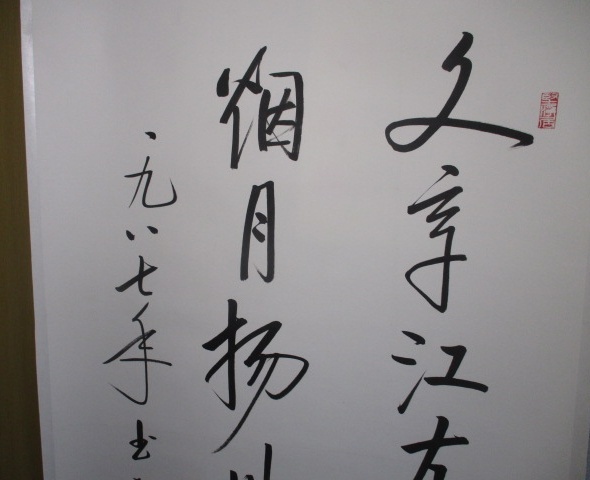 文章江左
烟月扬
一九八七年书